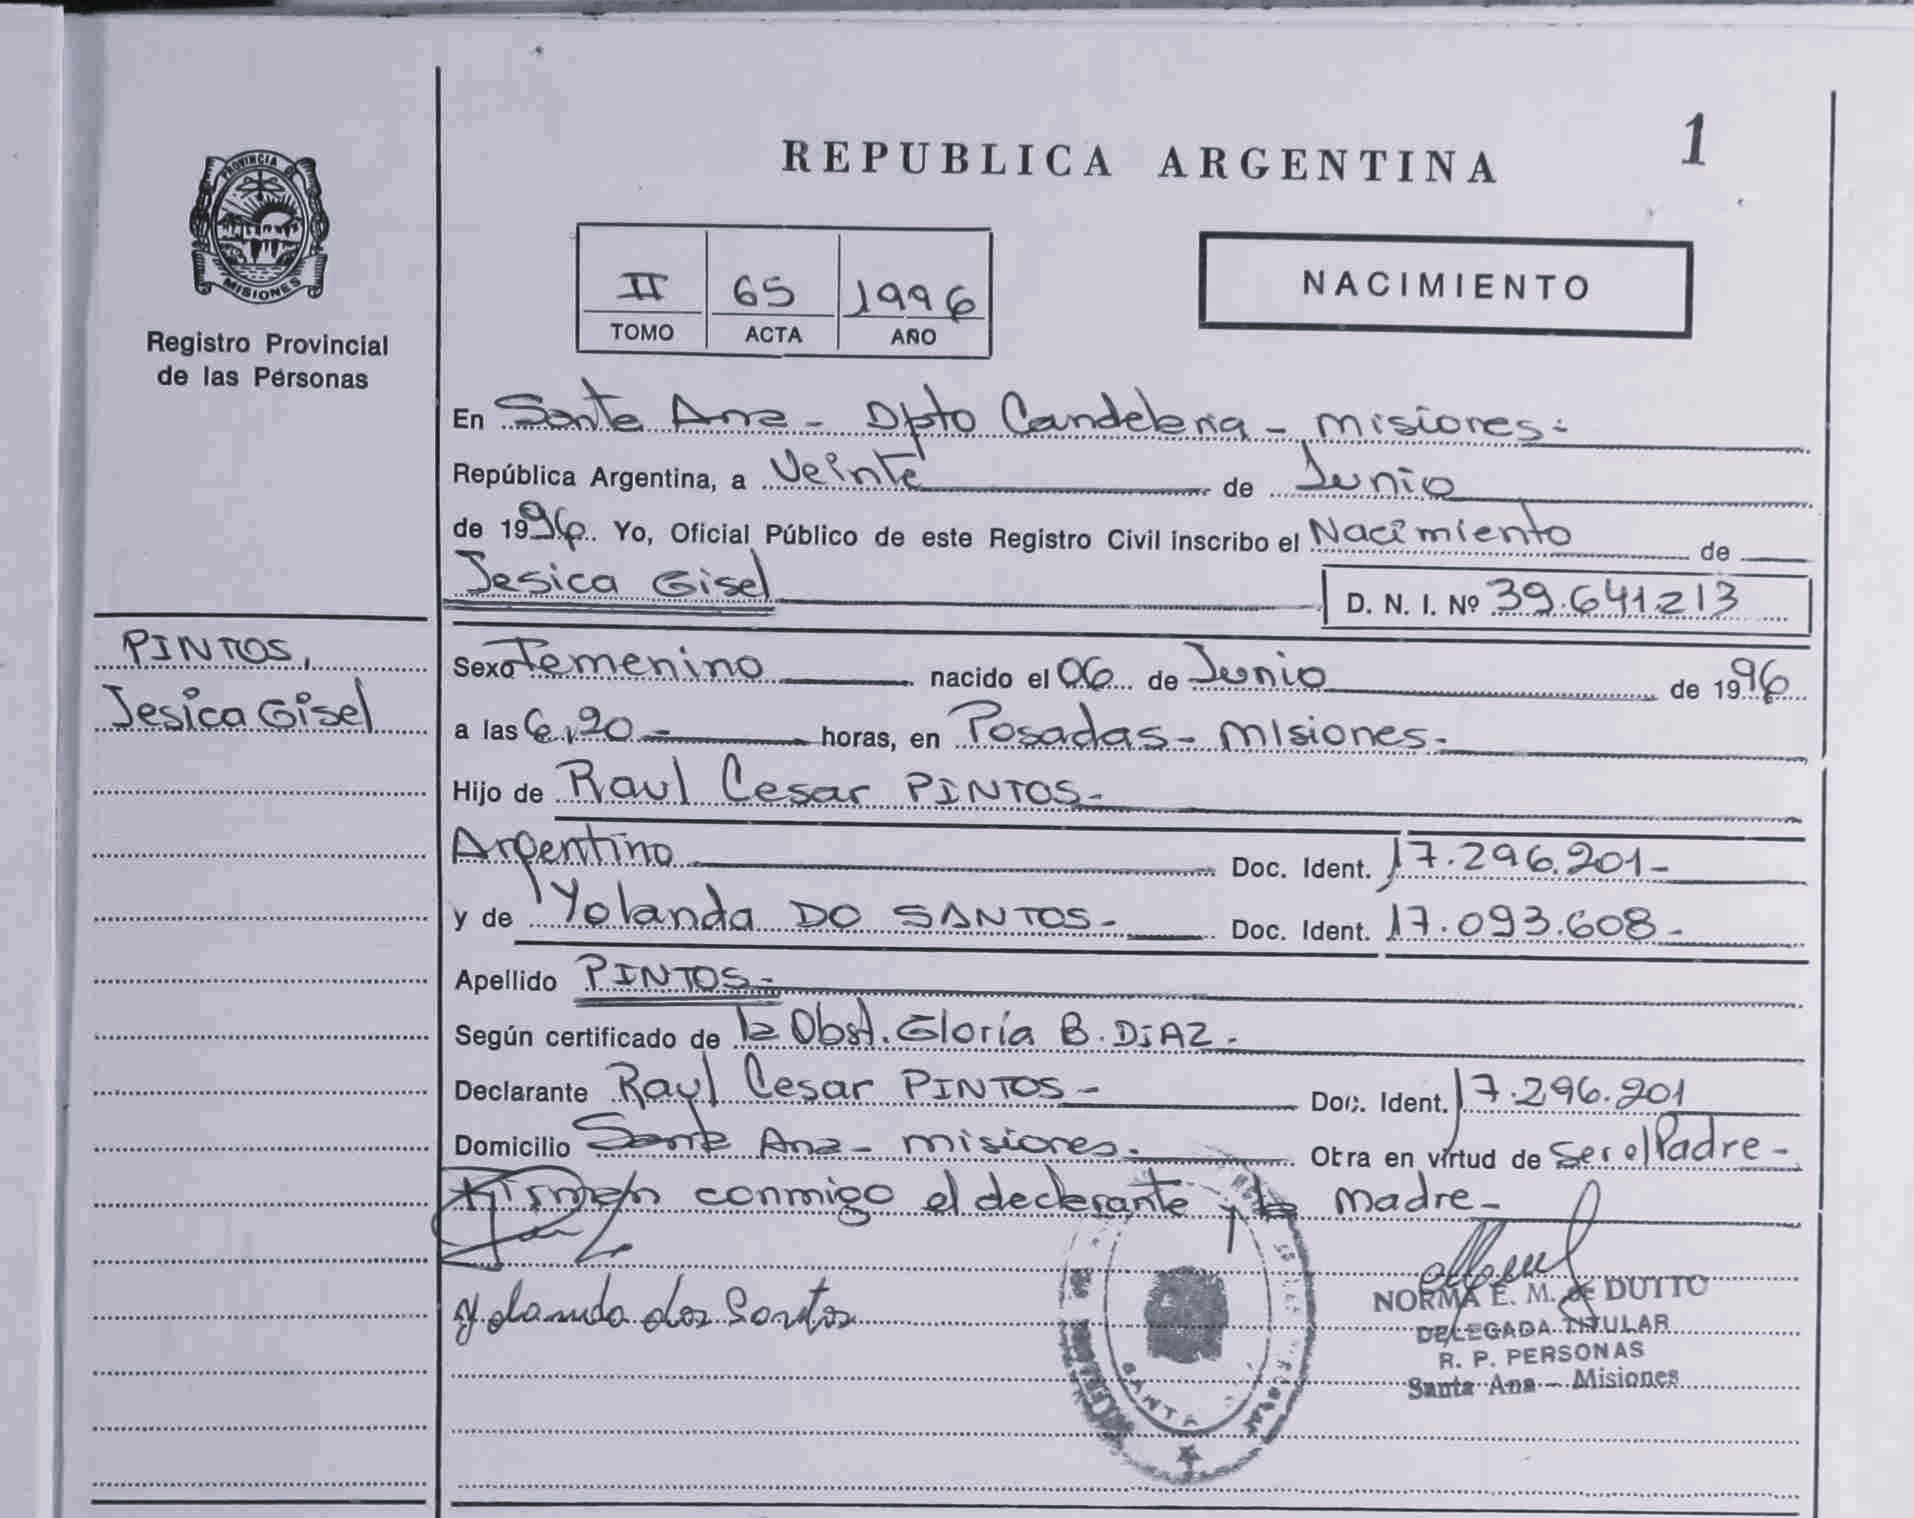 PROVINCIA DE
MISIONES
Registro Provincial
de las Personas
PINTOS,
Jesica Gisel
REPUBLICA ARGENTINA
1
II 65 1996
TOMO ACTA AÑO
NACIMIENTO
En Santa Ana - Dpto Candelaria - Misiones.-
República Argentina, a Veinte de Junio
de 1996. Yo, Oficial Público de este Registro Civil inscribo el Nacimiento de
Jesica Gisel D. N. I. Nº 39.641.213
Sexo Femenino nacido el 06 de Junio de 1996
a las 6,20 - horas, en Posadas - Misiones.-
Hijo de Raul Cesar PINTOS -
Argentino Doc. Ident. 17.296.201 -
y de Yolanda DO SANTOS - Doc. Ident. 17.093.608 -
Apellido PINTOS -
Según certificado de la Obst. Gloria B. DiAZ -
Declarante Raul Cesar PINTOS - Doc. Ident. 17.296.201
Domicilio Santa Ana - Misiones.- Obra en virtud de Ser el Padre -
Firman conmigo el declarante y la madre -
Yolanda dos Santos
SANTA
NORMA E. M. de DUTTO
DELEGADA TITULAR
R. P. PERSONAS
Santa Ana - Misiones